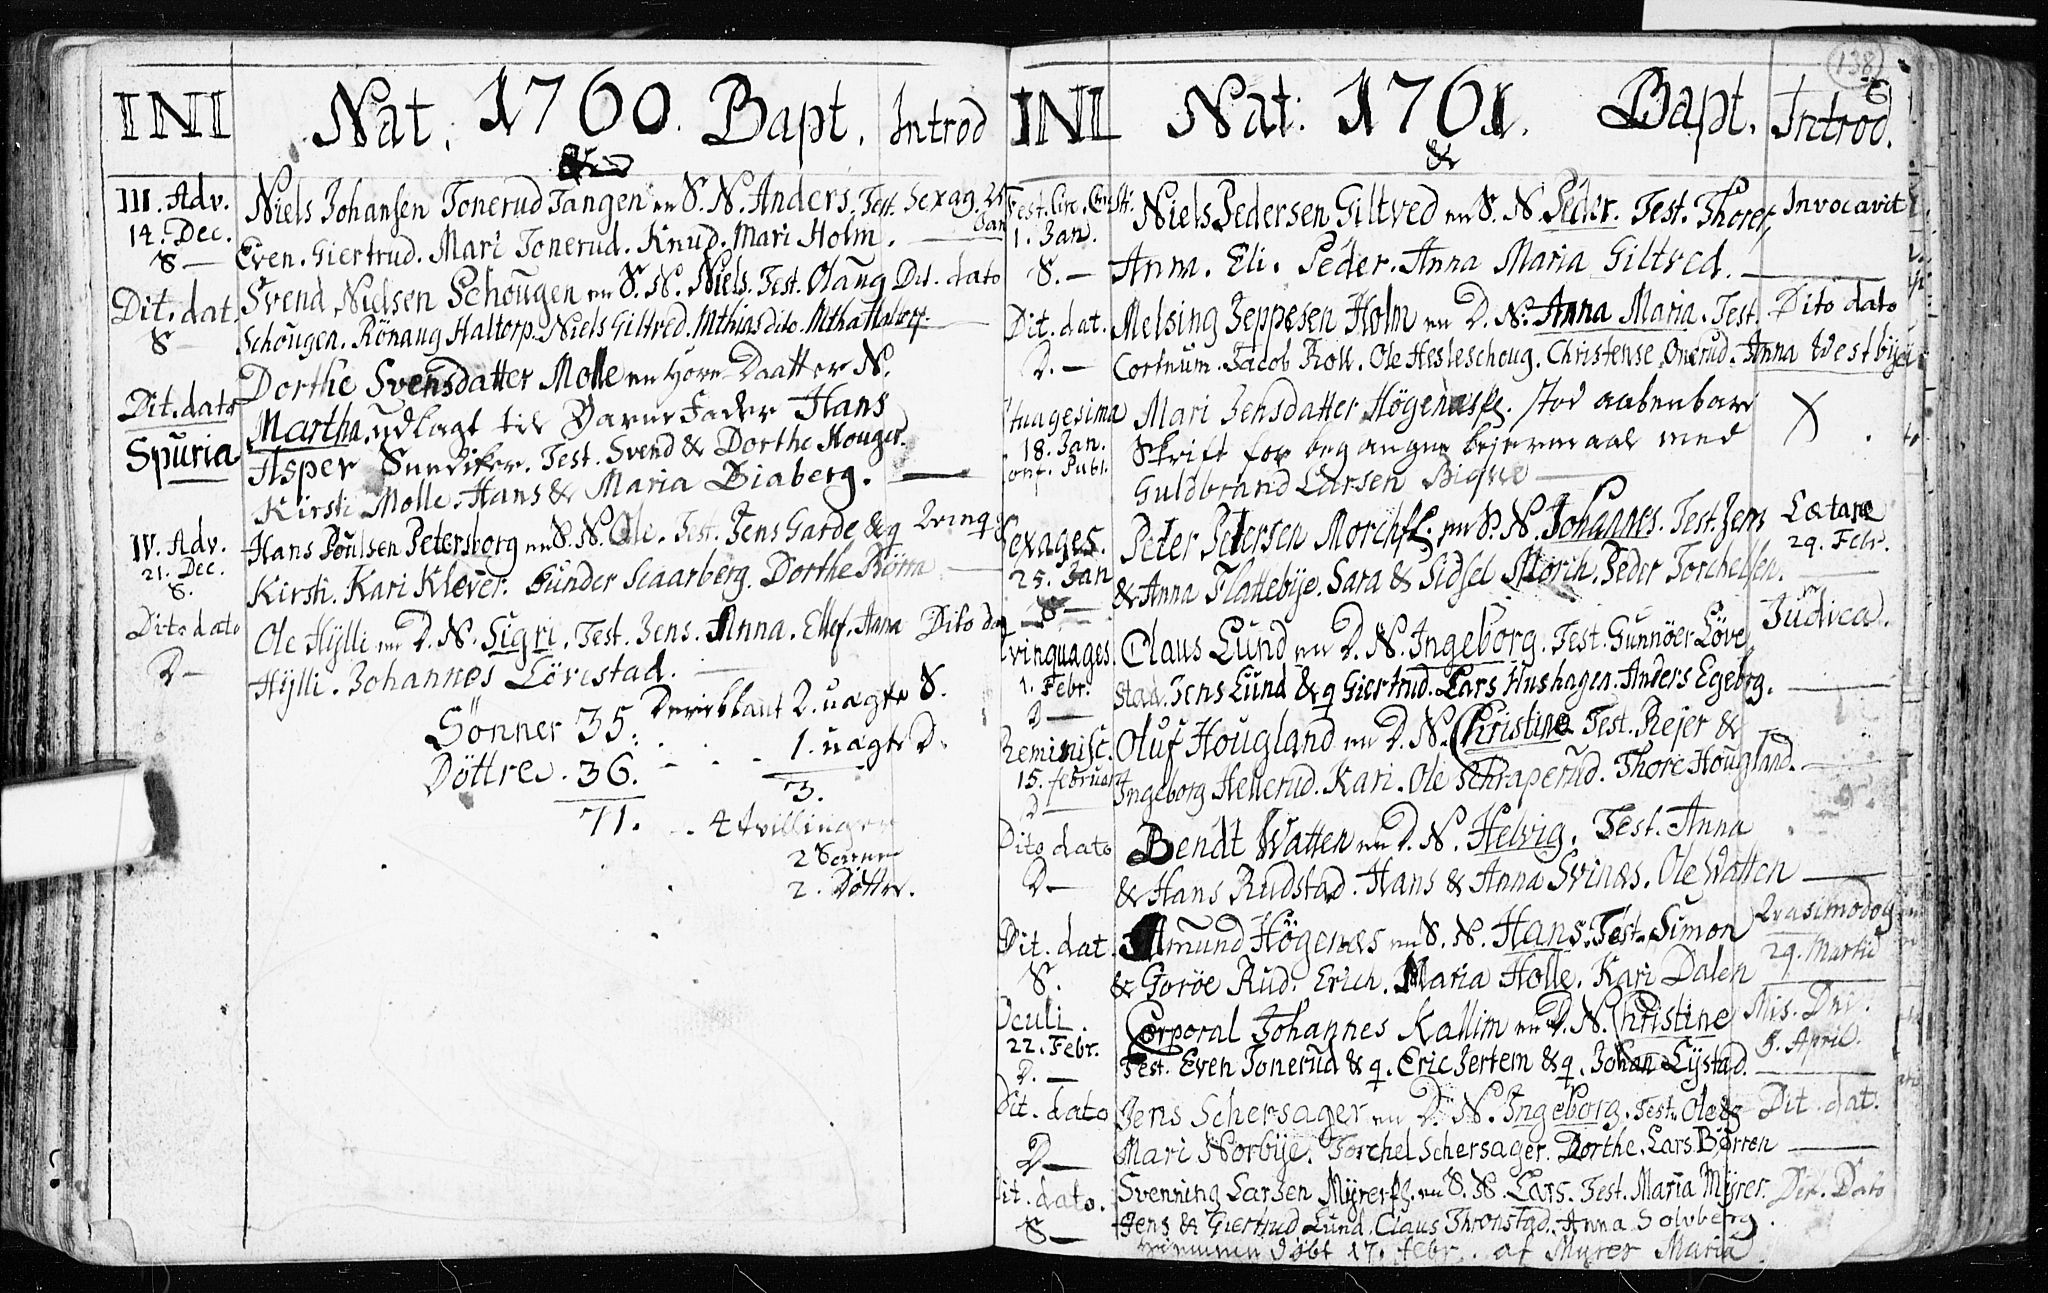 INI Nat. 1760. Bapt. Introd
&
III. Adv. Niels Johansen Tonerud Tangen en S. N. Anders. Test. Sexag. 25 Jan
14. Dec. Even. Giertrud. Mari Tonerud. Knud. Mari Holm.
S
Dit. dat. Svend Nielsen Schougen en S. N. Niels. Test. Olaug Dit. dato
S Schougen. Rönaug Haltorp. Niels Giltved. Mthias dito. Mtha Haltorp.
Dorthe Svensdatter Molle en Hore-Daatter N.
Dit. dato Martha. udlagt til Barne Fader Hans
Spuria Asper Test. Svend & Dorthe Houger.
Kirsti Molle. Hans & Maria Diaberg.
IV. Adv. Hans Poulsen Petersborg en S. N. Ole. Test. Jens Garde & q Qvinq.
21. Dec. Kirsti. Kari Klever. Gunder Scaarberg. Dorthe
S.
Dito dato Ole Hÿlli en D. N. Sigri. Test. Jens. Anna. Ellef. Anna Dito dat
D Hÿlli. Johannes Lövestad.
Sönner 35. Deriblant 2. uægte S.
Döttre. 36. 1. uægte D.
3.
71. 4 tvillinger
2 Sönner
2. Döttre.
INI Nat: 1761. Bapt. Introd.
138
6
&
Fest. Circ. Christi. Niels Pedersen Giltved en S. N. Peder. Test. Thorer, Invocavit
1. Jan. Anna. Eli. Peder. Anna Maria Giltved.
S.
Dit. dat. Melsing Jeppesen Holm en D. N. Anna Maria. Test. Dito dato
D. Corteum. Jacob Kroll. Ole Hesleschoug. Christense Onerud. Anna Westbÿe
Septuagesima Mari Jensdatter Högenæs stod aabenbare X
18. Jan. Skrift for begangne lejermaal med
Conf. Publ. Guldbrand Larsen
Sexages. Peder Pedersen Morch en S. N. Johannes. Test. Jens Lætare
25. Jan & Anna Flattebÿe. Sara & Sidsel Morch. Peder Torchelsen. 29. Febr.
S
Qvinquages. Claus Lund en D. N. Ingeborg. Test. Gunnöer Löve Judica.
1. Febr. stad. Jens Lund & q Giertrud. Lars Hushagen. Anders Egeberg.
D
Reminisc. Oluf Hougland en D. N. Christine Test. Rejer &
15. februar Ingeborg Hellerud. Kari. Ole Schraperud. Thore Hougland.
D
Dito dato Bendt Watten en D. N. Helvig. Test. Anna
D & Hans Rudstad. Hans & Anna Svinæs. Ole Watten
Dit. dat. Amund Högenæs en S. N. Hans. Test. Simon Qvasimodog
S. & Goröe Rud. Erich. Maria Holle. Kari Dalen 29. Martii
Oculi. Corporal Johannes Kallim en D. N. Christine Mis. Dni.
22. Febr. Test. Even Tonerud & q. Eric Jertem & q. Johan Lÿstad. 5. April.
D.
Dit. dato Jens Schersager en D. N. Ingeborg. Test. Ole & Dit. dat.
D Mari Norbÿe. Torchel Schersager. Dorthe. Lars Börren
Dit. dato. Svenning Larsen Mÿrer en S. N. Lars. Test. Maria Mÿrer. Dit. Dato
S Jens & Giertrud Lund. Claus Thronstad. Anna Solvberg.
hiemme döbt 17. febr. af Myrer Maria